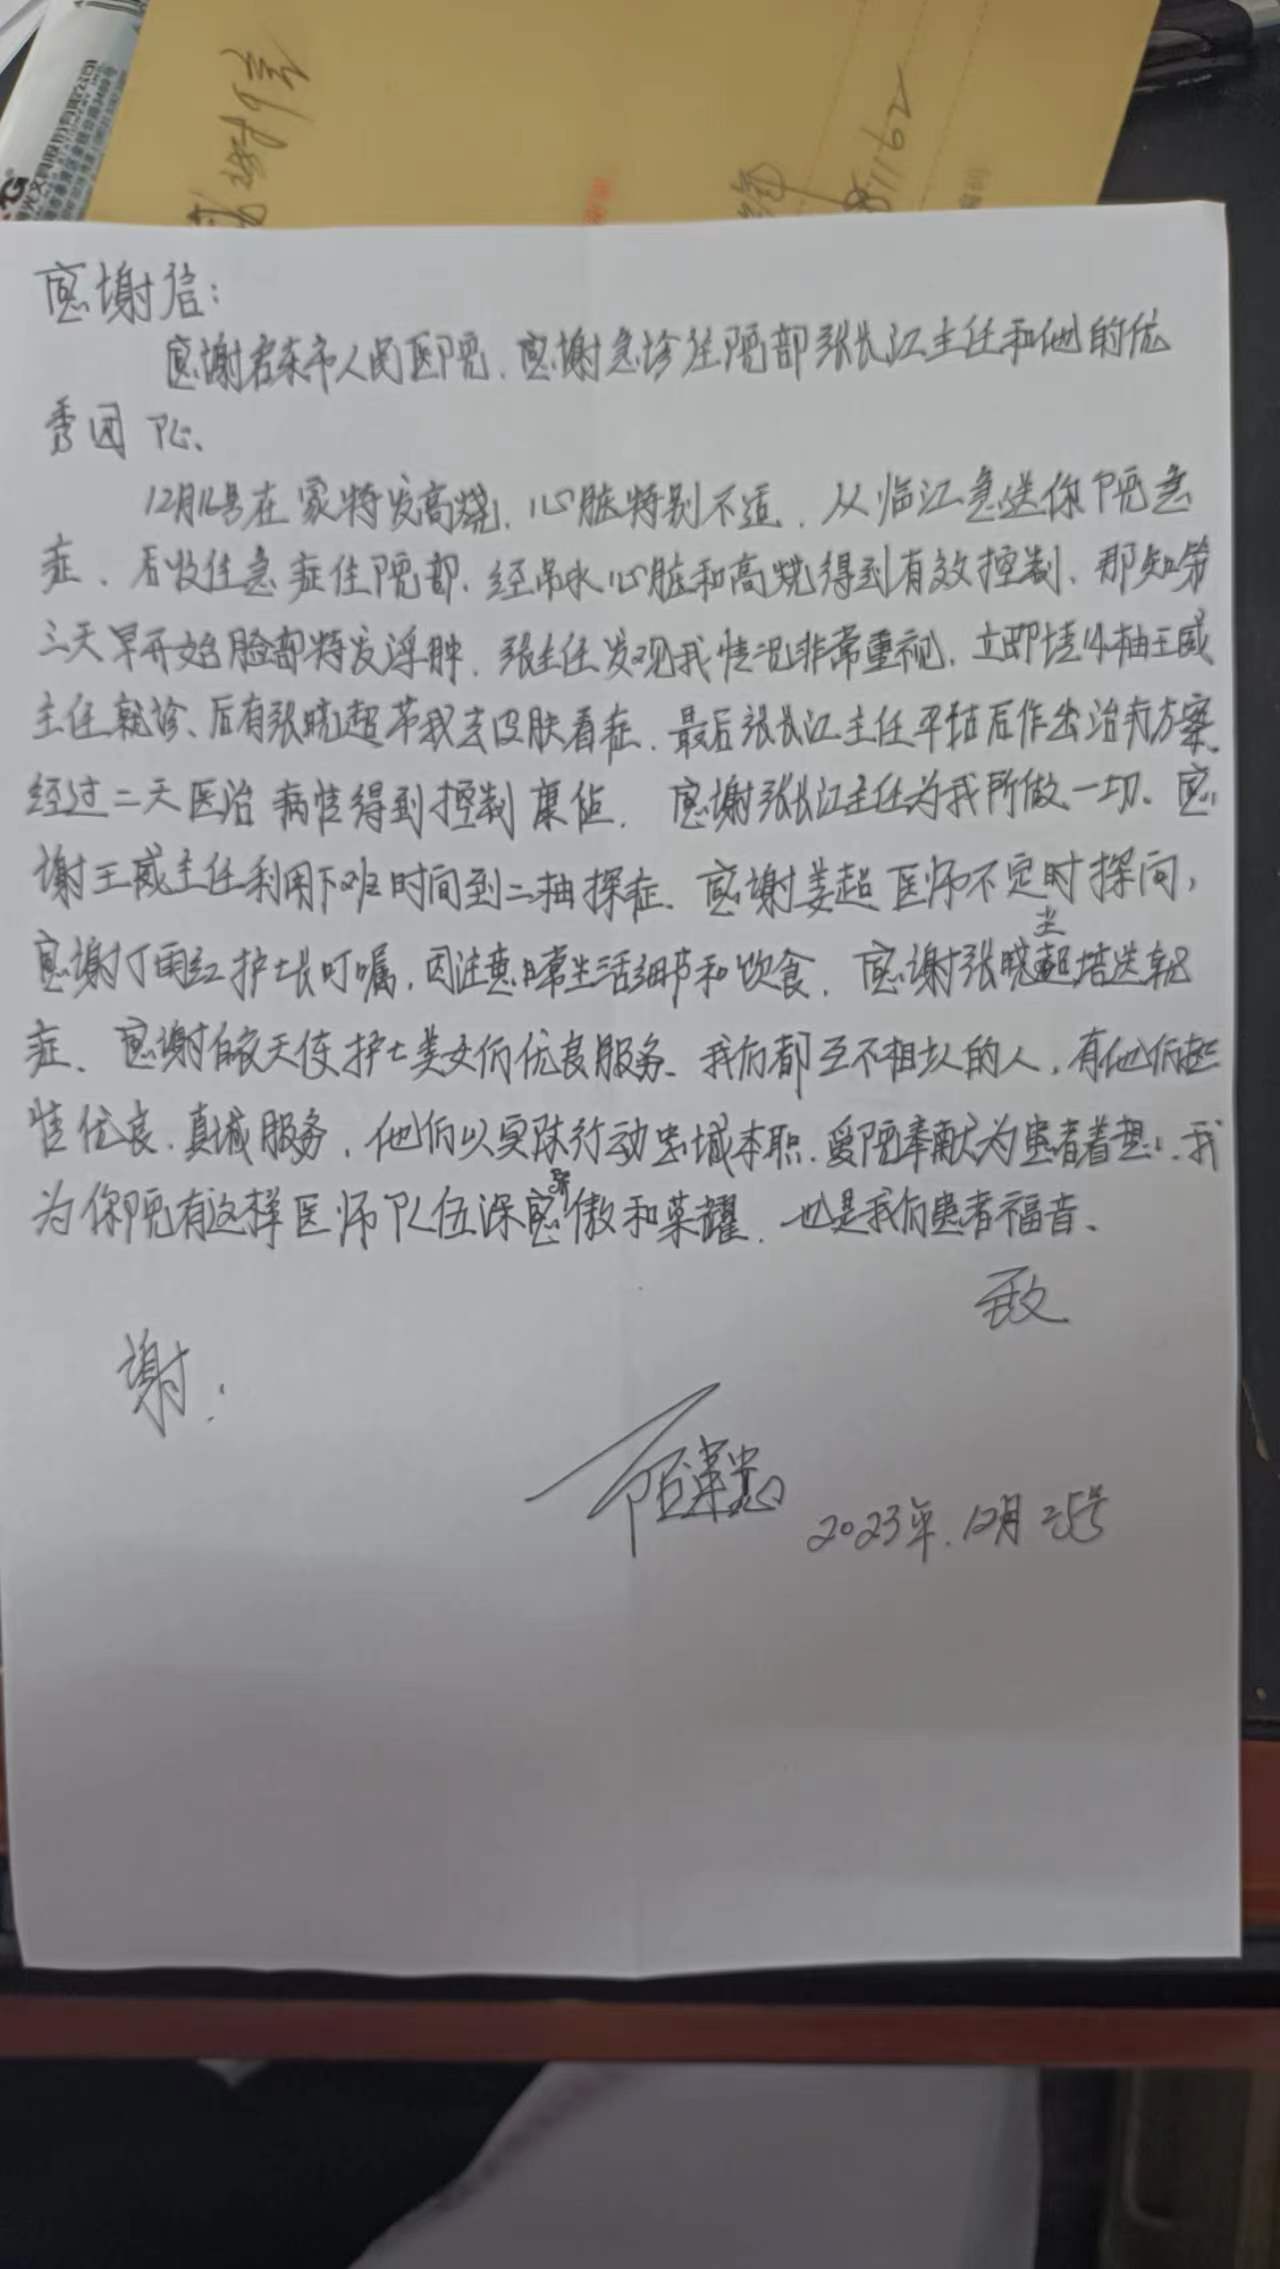 感谢信
81162
感谢信：
感谢启东市人民医院、感谢急诊住院部张长江主任和他的优
秀团队、
12月16号在家特发高烧、心脏特别不适、从临江急送你院急
症、后收住急症住院部、经吊水心脏和高烧得到有效控制、那知第
三天早开始脸部特发浮肿、张主任发现我情况非常重视、立即请4抽王威
主任就诊、后有张晓超带我去皮肤看症、最后张长江主任平估后作出治疗方案、
经过二天医治病情得到控制 感谢张长江主任为我所做一切、感
谢王威主任利用下班时间到二抽探症、感谢姜超医师不定时探问，
感谢丁雨红护士长叮嘱，因注意日常生活细节和饮食、感谢张晓超培送就
症、感谢白衣天使护士美女们优良服务、我们都互不相识的人，有他们热
情优良、真诚服务，他们以实际行动忠诚本职、爱院奉献为患者着想、我
为你院有这样医师队伍深感骄傲和荣耀、也是我们患者福音、
致
谢！
2023年、12月25号